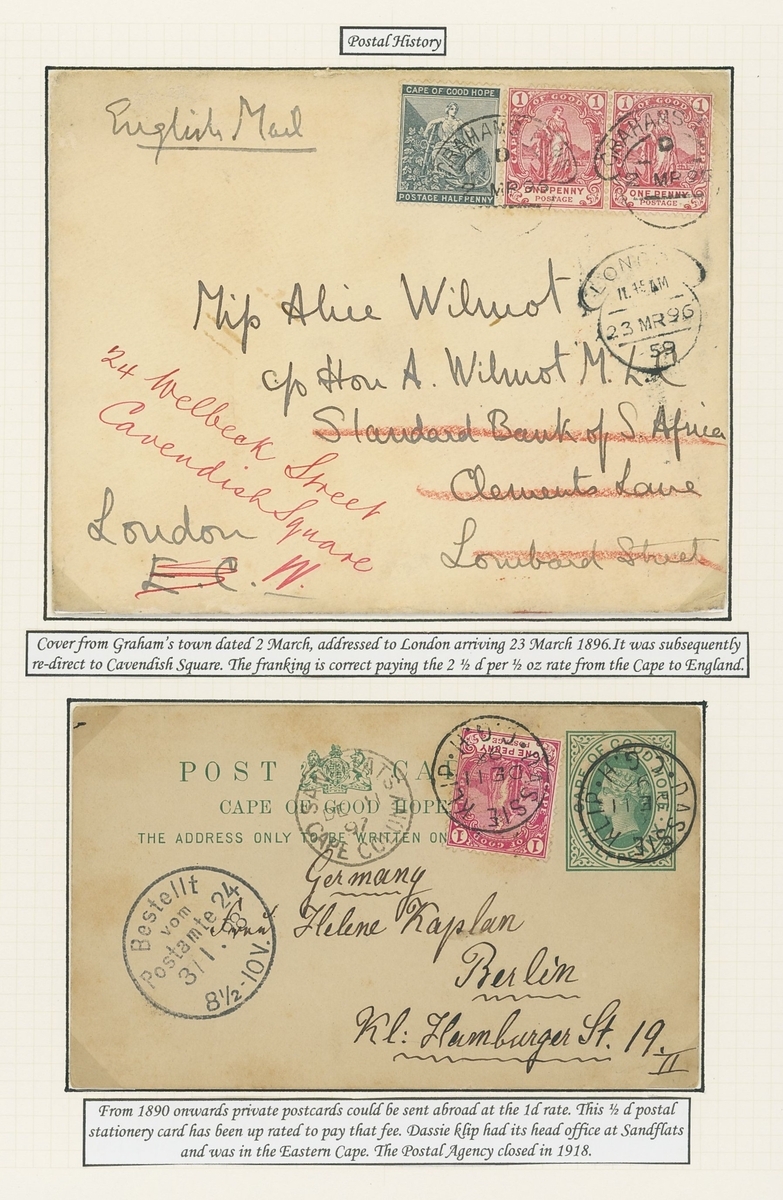 Postal History
English Mail
CAPE OF GOOD HOPE
POSTAGE HALFPENNY
1 OF GOOD 1
ONE PENNY
POSTAGE
1 OF GOOD 1
ONE PENNY
POSTAGE
GRAHAMS
D
MR 96
GRAHAMS
D
MR 96
LOND
11.15 AM
23 MR 96
59
Miss Alice Wilmot
c/o Hon A. Wilmot M.L.C
Standard Bank of S. Africa
Clements Lane
Lombard Street
24 Welbeck Street
Cavendish Square
London
E.C. W.
Cover from Graham's town dated 2 March, addressed to London arriving 23 March 1896.It was subsequently
re-direct to Cavendish Square. The franking is correct paying the 2 ½ d per ½ oz rate from the Cape to England.
POST CA
CAPE OF GOOD HOPE
THE ADDRESS ONLY TO BE WRITTEN ON
SAND FLATS
DE
97
CAPE COLONY
ONE PENNY
POSTAGE
1 OF GOOD 1
DASSIE KLIP
CAPE OF GOOD HOPE
HALFPENNY
DASSIE KLIP
Bestellt
vom
Postamte 24
3/1.98
8½-10V.
Germany
Helene Kaplan
Berlin
Kl: Hamburger St. 19.
II
From 1890 onwards private postcards could be sent abroad at the 1d rate. This ½ d postal
stationery card has been up rated to pay that fee. Dassie klip had its head office at Sandflats
and was in the Eastern Cape. The Postal Agency closed in 1918.